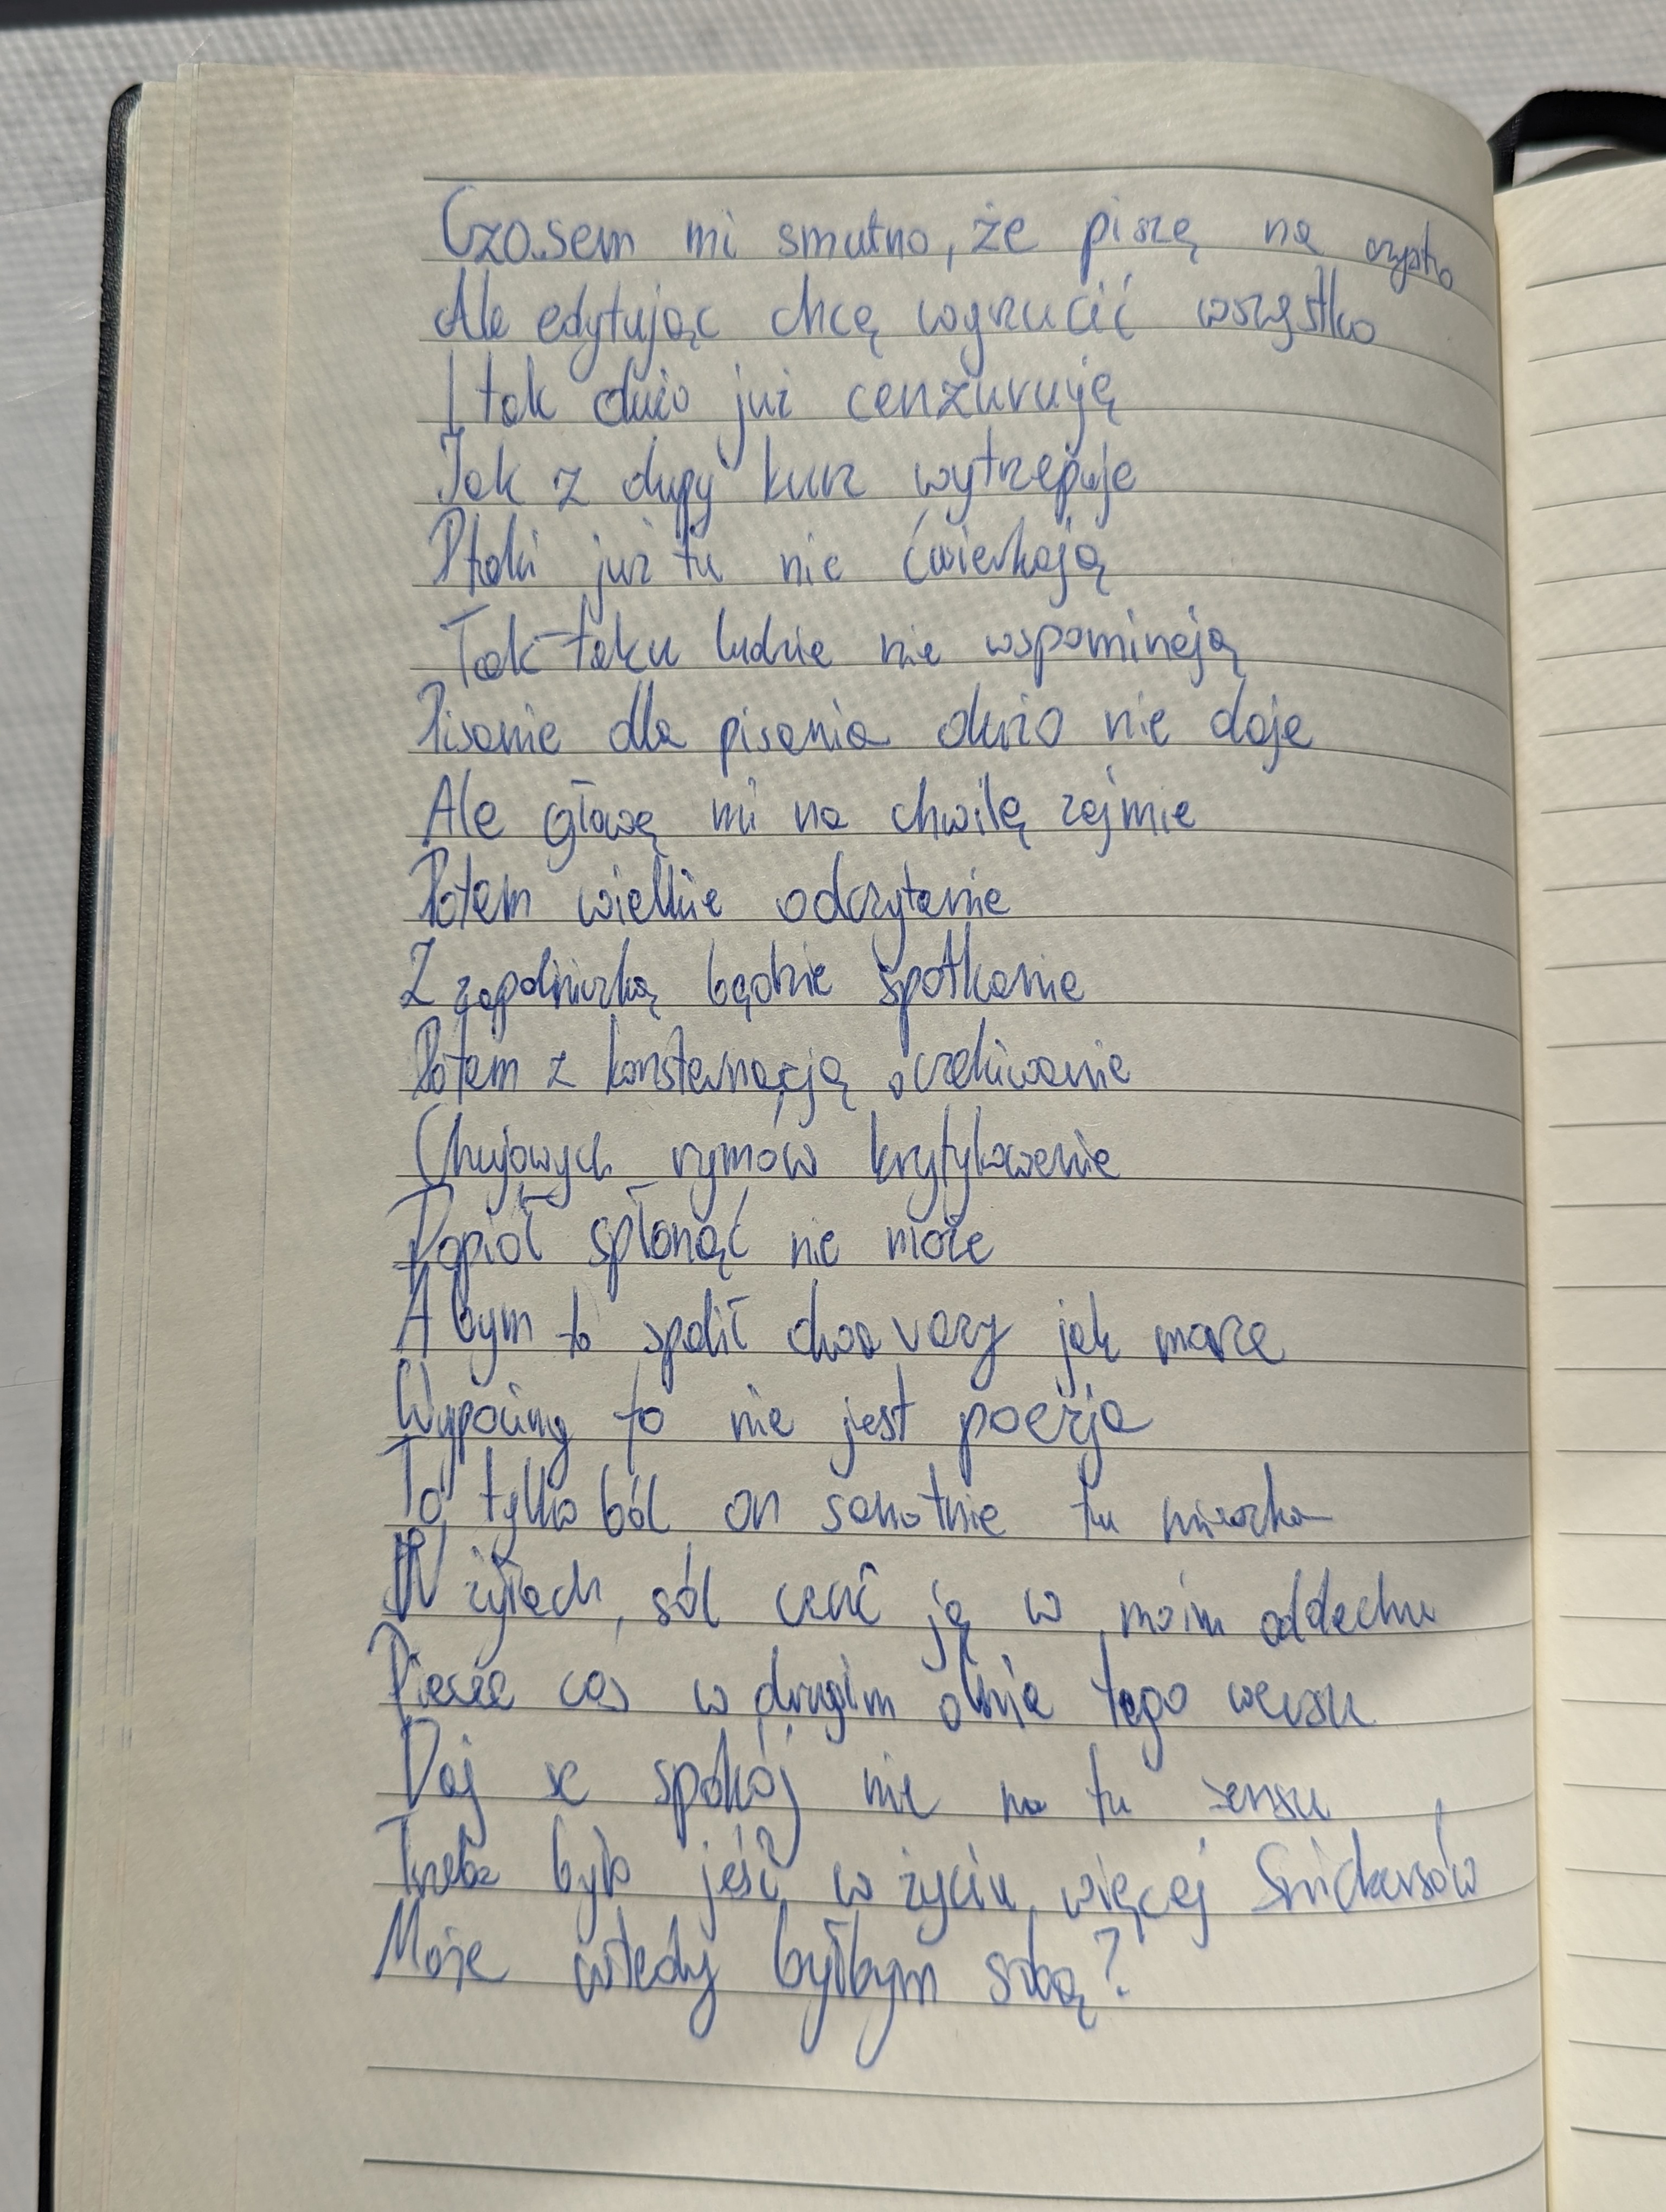 Czasem mi smutno, że piszę na czysto
Ale edytując chcę wyrzucić wszystko
I tak dużo już cenzuruję
Jak z dupy kurz wytrzepuje
Ptaki już tu nie ćwierkają
Tak-taku ludzie nie wspominają
Pisanie dla pisania dużo nie daje
Ale głowę mi na chwilę zajmie
Potem wielkie odczytanie
Z zapalniczką będzie spotkanie
Potem z konsternacją oczekiwanie
Chujowych rymów krytykowanie
Popiół spłonąć nie może
A bym to spalił dwa razy jak marzę
Wypociny to nie jest poezja
To tylko ból on samotnie tu mieszka
W żyłach, sól czuć ją w moim oddechu
Piesze coś w drugim dnie tego wersu
Daj se spokój nie ma tu sensu
Trzeba było jeść w życiu więcej Snickersów
Może wtedy byłbym sobą?